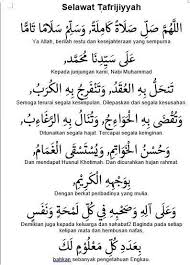 Selawat Tafrijiyyah
اَللّٰهُمَّ صَلِّ صَلَاةً كَامِلَةً، وَسَلِّمْ سَلَامًا تَامًّا
Ya Allah, berilah restu dan kesejahteraan yang sempurna
عَلَى سَيِّدِنَا مُحَمَّدٍ،
Kepada junjungan kami, Nabi Muhammad
تَنْحَلُّ بِهِ الْعُقَدُ، وَتَنْفَرِجُ بِهِ الْكُرَبُ،
Semoga terurai segala kesimpulan. Dilepaskan dari segala kesusahan.
وَتُقْضَى بِهِ الْحَوَائِجُ، وَتُنَالُ بِهِ الرَّغَائِبُ،
Ditunaikan segala hajat. Tercapai segala keinginan.
وَحُسْنُ الْخَوَاتِيْمِ، وَيُسْتَسْقَى الْغَمَامُ
Dan mendapat Husnul Khotimah. Dan dicurahkan hujan rahmat
بِوَجْهِهِ الْكَرِيْمِ،
Dengan berkat peribadinya yang mulia.
وَعَلَى آلِهِ وَصَحْبِهِ فِي كُلِّ لَمْحَةٍ وَنَفَسٍ
Demikian juga kepada keluarga dan sahabat? Daripada pada setiap
kelipan mata dan hembusan nafas,
بِعَدَدِ كُلِّ مَعْلُوْمٍ لَكَ
bahkan sebanyak pengetahuan Engkau.